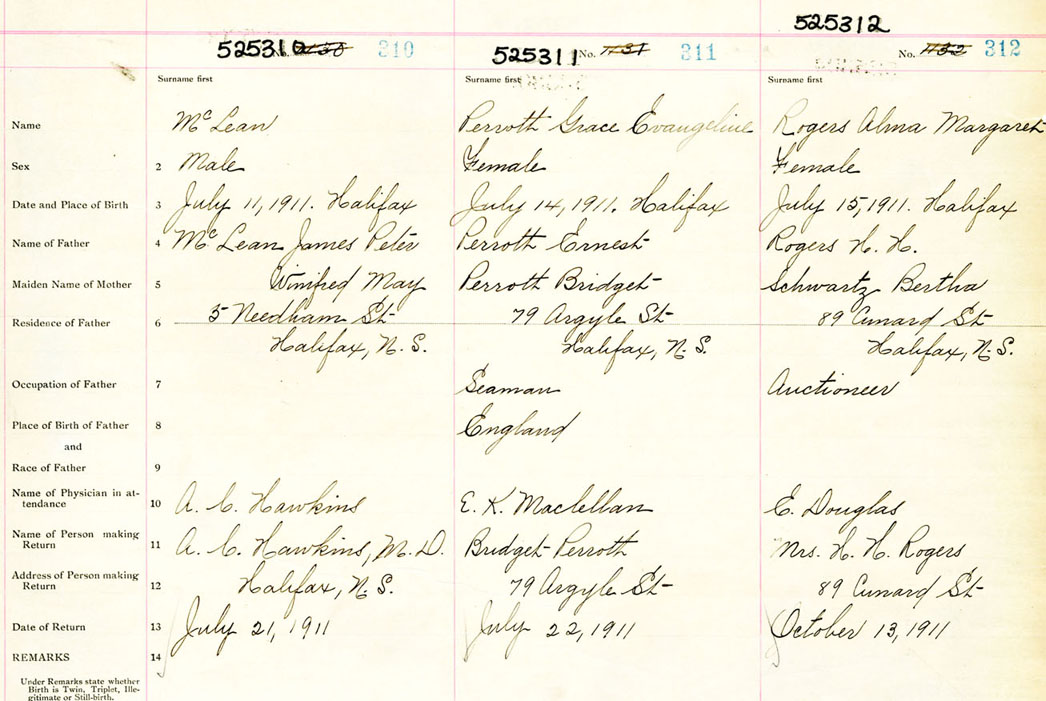 525312
525310 No. 310
525311 No. 311
No. 312
Surname first Surname first Surname first
Name McLean Perroth Grace Evangeline Rogers Alma Margaret
Sex 2 Male Female Female
Date and Place of Birth 3 July 11, 1911. Halifax July 14, 1911. Halifax July 15, 1911. Halifax
Name of Father 4 McLean James Peter Perroth Ernest Rogers H. H.
Maiden Name of Mother 5 Winifred May Perroth Bridget Schwartz Bertha
Residence of Father 6 5 Needham St 79 Argyle St 89 Cunard St
Halifax, N.S. Halifax, N.S. Halifax, N.S.
Occupation of Father 7 Seaman Auctioneer
Place of Birth of Father 8 England
and
Race of Father 9
Name of Physician in at-
tendance 10 A. C. Hawkins E. K. Maclellan E. Douglas
Name of Person making
Return 11 A. C. Hawkins, M.D. Bridget Perroth Mrs. H. H. Rogers
Address of Person making
Return 12 Halifax, N.S. 79 Argyle St 89 Cunard St
Date of Return 13 July 21, 1911 July 22, 1911 October 13, 1911
REMARKS 14
Under Remarks state whether
Birth is Twin, Triplet, Ille-
gitimate or Still-birth.